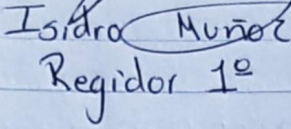 Isidro Muñoz
Regidor 1º